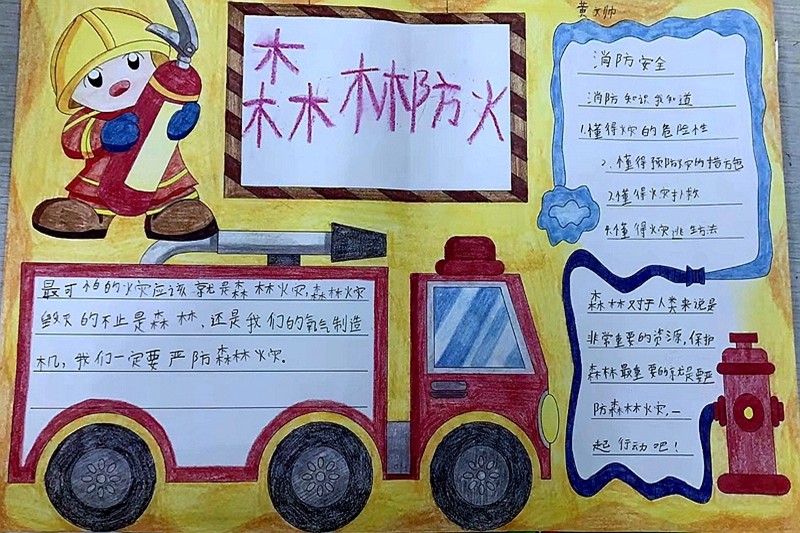 黄文帅
森林防火
消防安全
消防知识我知道
1.懂得火灾的危险性
2.懂得预防火灾的措施
3.懂得火灾扑救
4.懂得火灾逃生方法
最可怕的火灾应该就是森林火灾,森林火灾
毁灭的不止是森林,还是我们的氧气制造
机,我们一定要严防森林火灾。
森林对于人类来说是
非常重要的资源,保护
森林最重要的就是要严
防森林火灾,一
起行动吧!